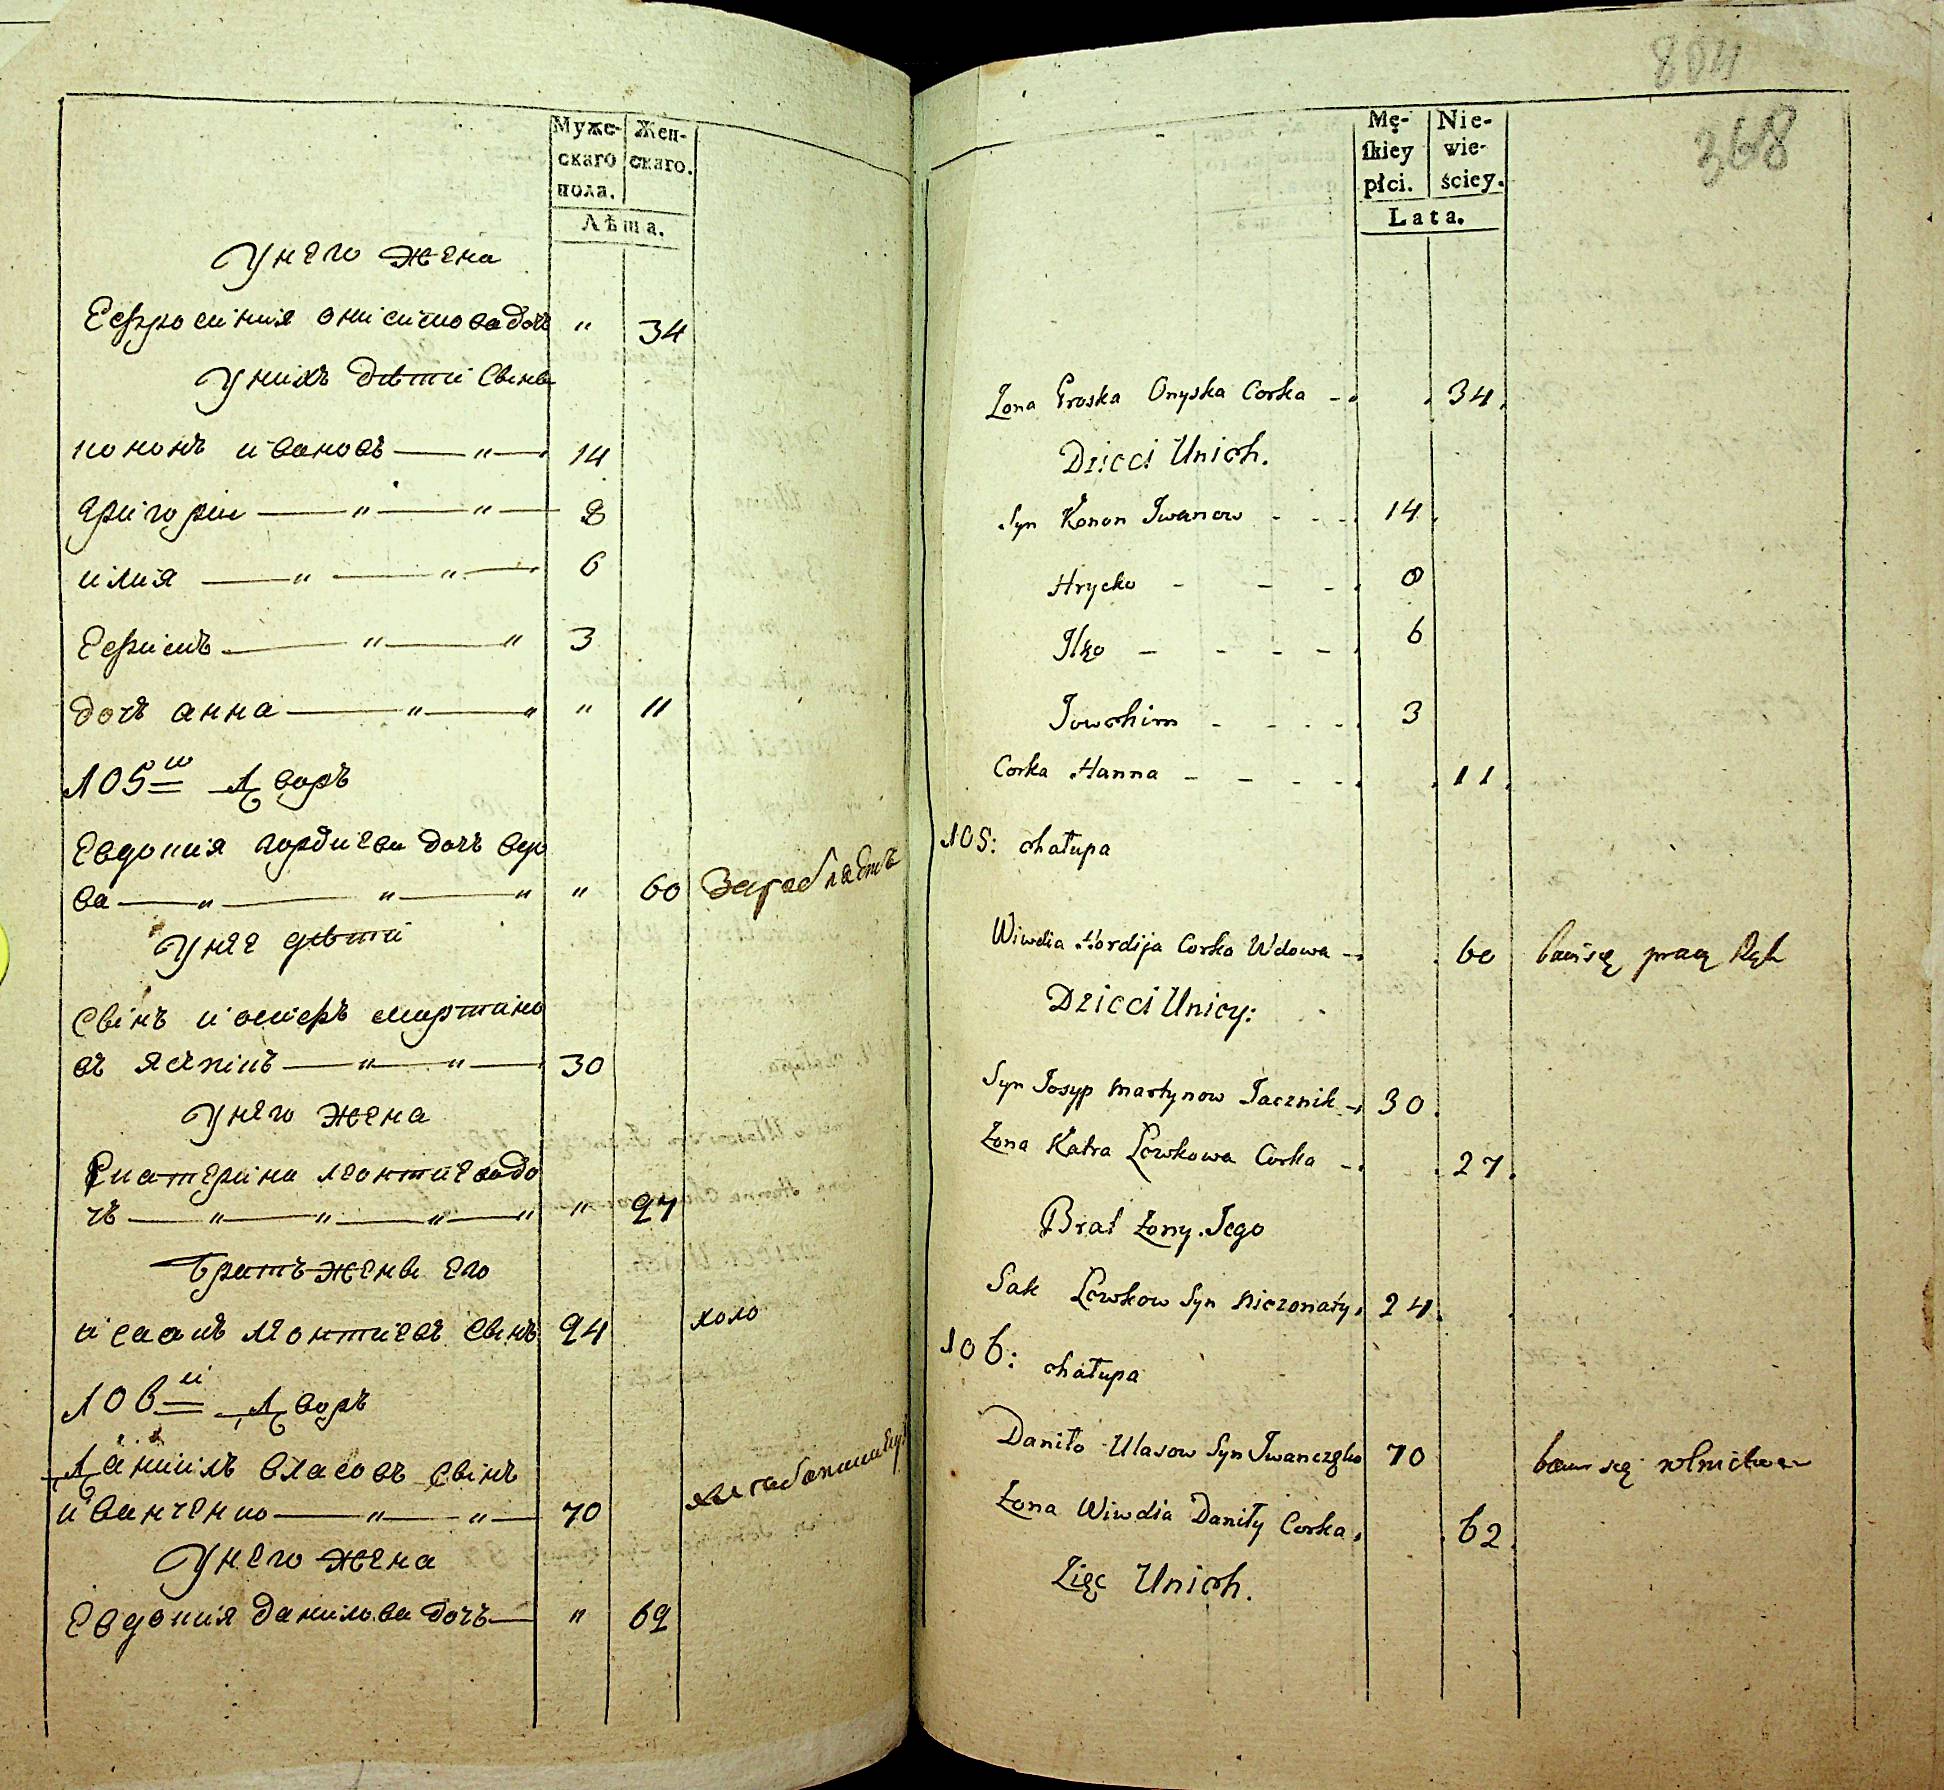 Муже-
скаго
пола.
Жен-
скаго.
Лѣта.
У него жена
Ефросиния онисимова дочь " 34
У нихъ дѣти сынъ
кононъ ивановъ — " — 14
григории — " — " — 8
илия — " — " — 6
Ефимъ — " — " 3
дочь анна — " — " " 11
105й Дворъ
Евдокия гордиева дочь вдо
ва — " — " — " " 60
У нее дѣти
Сынъ иосифъ мартыно
въ — " — " — 30
У него жена
Екатерина леонтиева до
чь — " — " — " — " " 27
братъ жены его
исаакъ леонтиевъ сынъ 24 холо
106й Дворъ
Даниилъ власовъ сынъ
иванченко — " — " — 70
У него жена
Евдокия данилова дочь — " 62
804
368
Mę-
skiey
płci.
Nie-
wie-
ściey.
Lata.
Zona Proska Onyska Corka - 34.
Dzieci Unich.
Syn Konon Jwanow - - - 14.
Hrycko - - - 8
Jlko - - - - 6
Jowchim - - - - 3
Corka Hanna - - - - 11.
105: chałupa
Wiwdia Hordija Corka Wdowa - 60 bawi się pracą Rąk
Dzieci Unicy:
Syn Josyp Martynow Jacznik - 30.
Zona Katra Lewkowa Corka - 27.
Brat Zony Jego
Sak Lewkow Syn Niezonaty. 24.
106: chałupa
Daniło Ulasow Syn Jwanczęko 70 bawi się rolnictwem
Zona Wiwdia Daniły Corka. 62.
Zięc Unich.